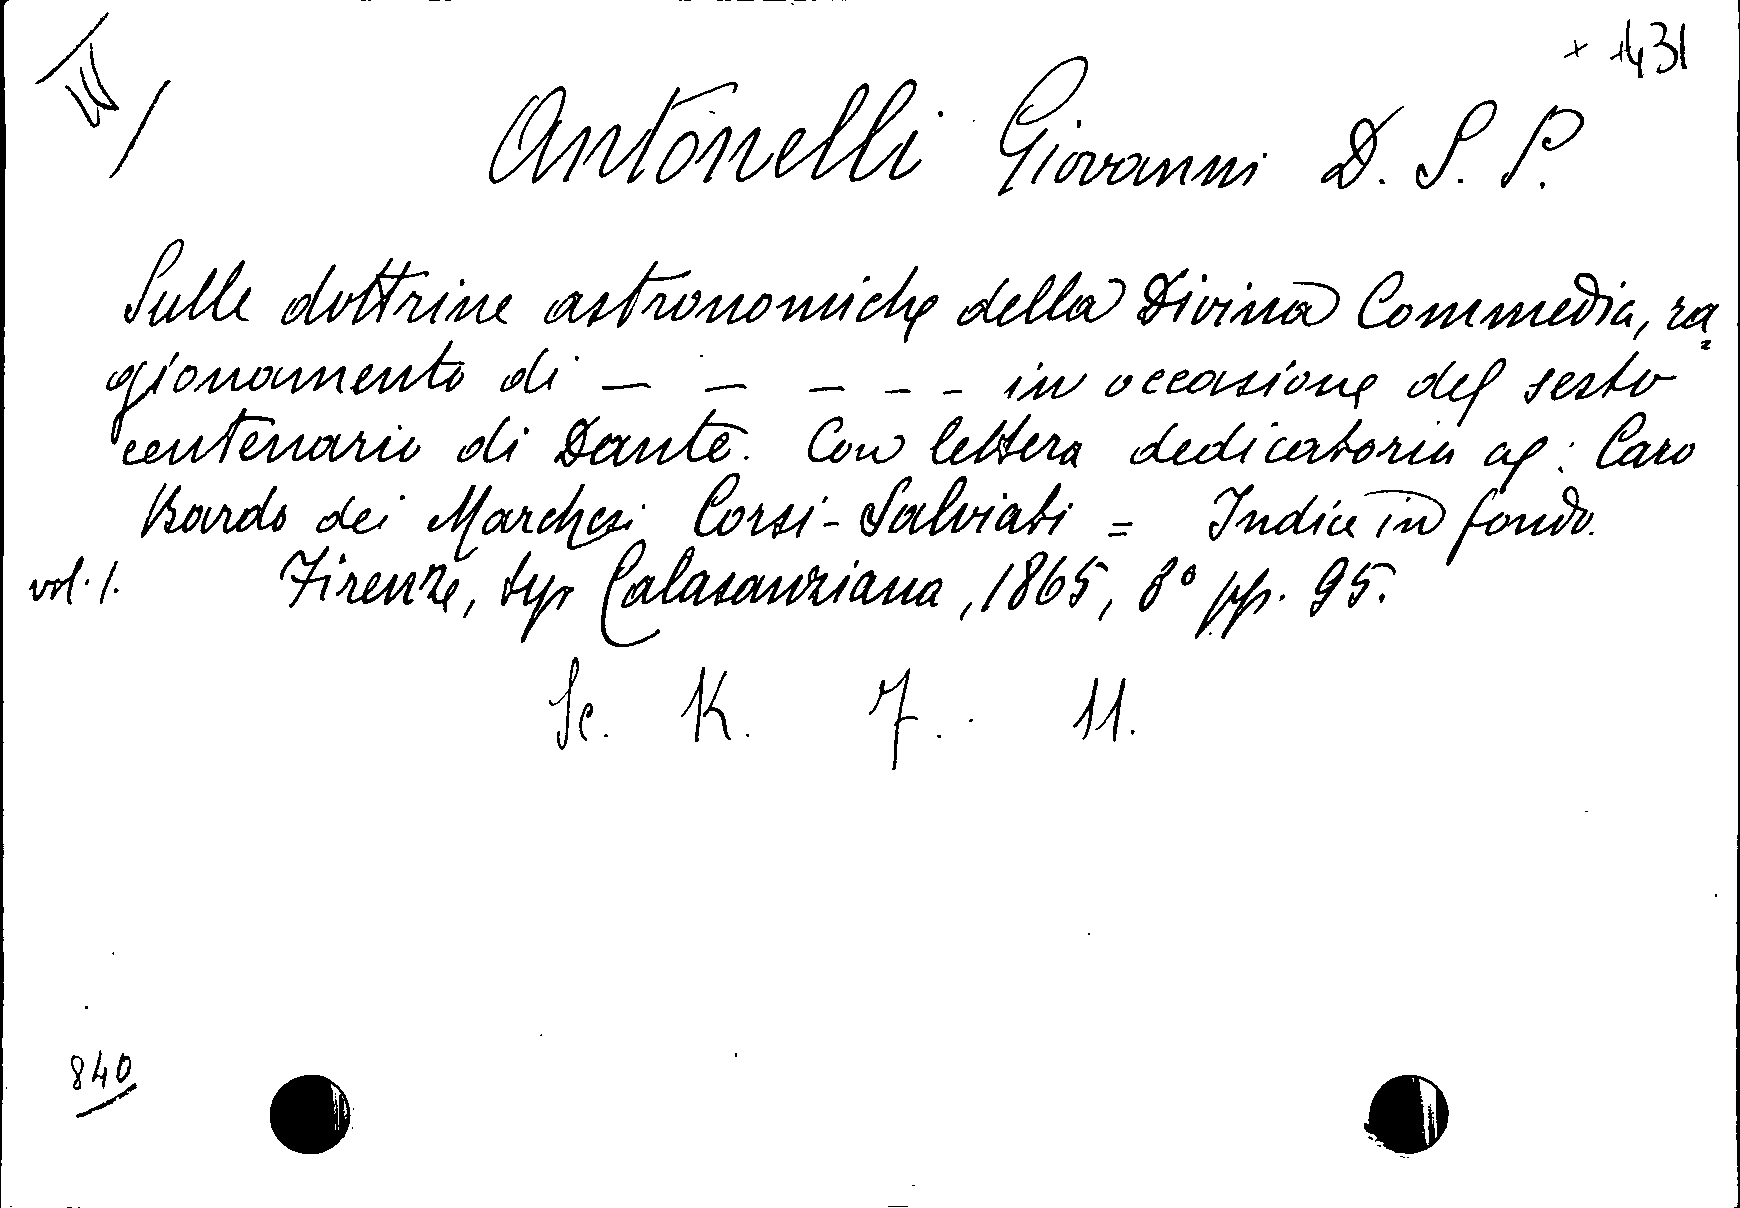 III
+ 431
Antonelli Giovanni D. S. P.
Sulle dottrine astronomiche della Divina Commedia, ra=
gionamento di — — — - - in occasione del sesto
centenario di Dante. Con lettera dedicatoria al: Caro
Bardo dei Marchesi Corsi-Salviati = Indice in fondo.
vol. 1. Firenze, typ Calasanziana, 1865, 8° pp. 95.
Sc. K. 7. 11.
840